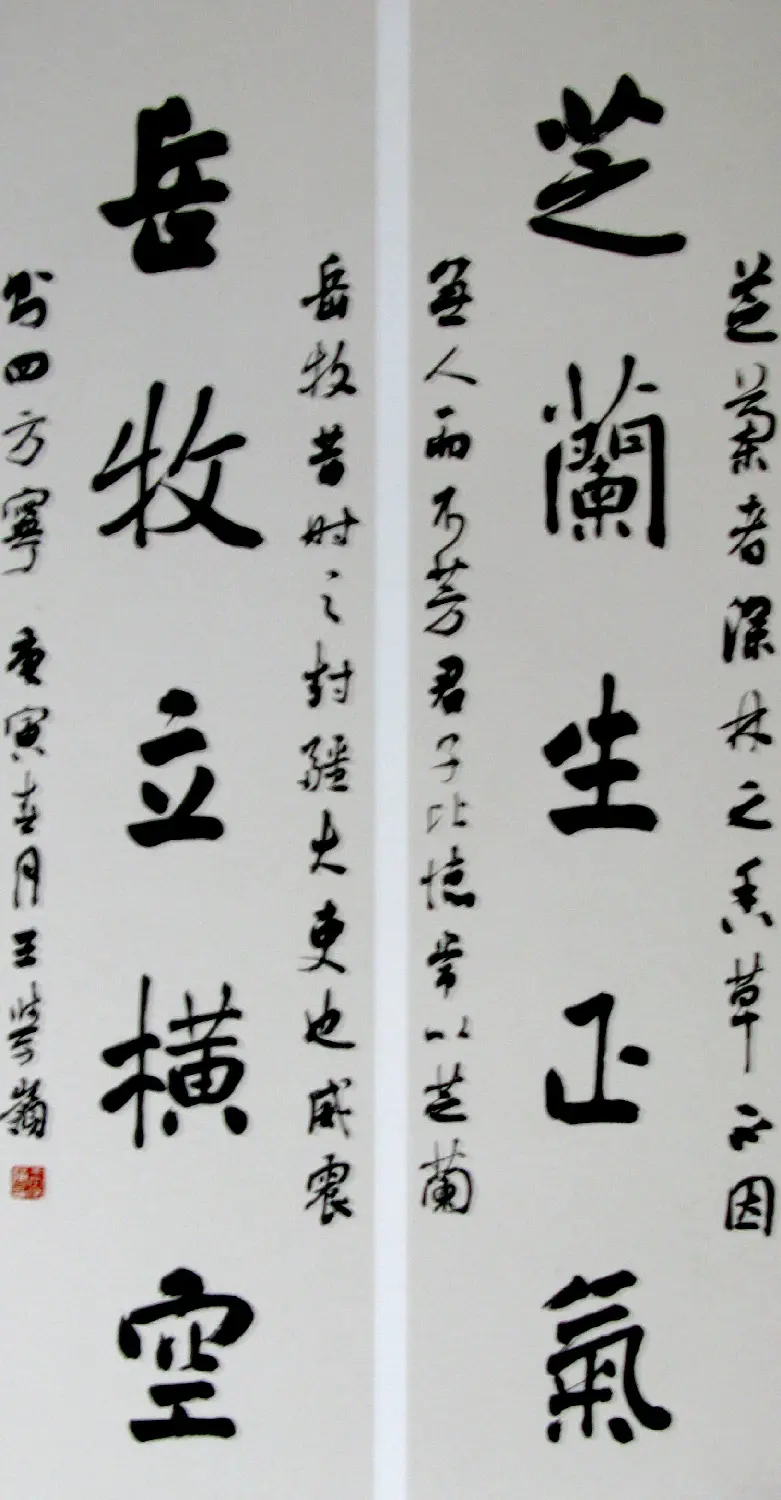 芝蘭者深林之香草不因
芝蘭生正氣
無人而不芳君子比德常以芝蘭
岳牧昔时之封疆大吏也威震
岳牧立橫空
四方寧 庚寅春月王